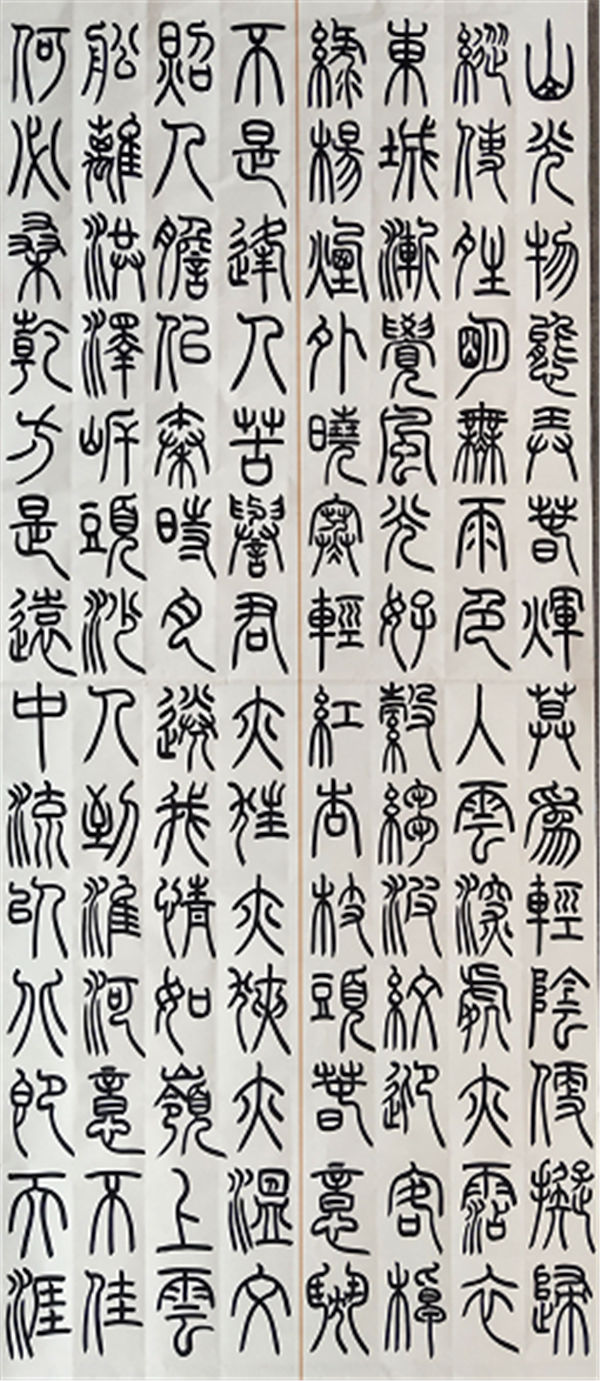 山光物態弄春輝莫為輕陰便擬歸
縱使夝明無雨色入雲深處亦霑衣
東城漸覺風光好縠縐波紋迎客棹
綠楊煙外曉寒輕紅杏枝頭春意鬧
不是逢人苦譽君亦狂亦俠亦溫文
照人膽似秦時月送我情如嶺上雲
船離洪澤岸頭沙人到淮河意不佳
何必桑乾方是遠中流以北即天涯